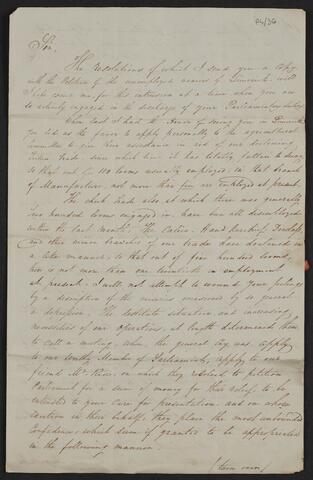 P6/36
Sir,
The resolutions of which I send you a Copy
with the Petition of the unemployed weavers of Limerick will
I hope excuse me for the intrusion at a time when you are
so actively engaged in the discharge of your Parliamentary duties
When last I had the Honor of seeing you in Limerick
you did us the favor to apply personally to the agricultural
Committee to give their assistance in aid of our declining
Trade, since which time it has totally fallen to decay
so that out of 110 looms usually employed in that branch
of Manufacture, not more than five are employed at present.
The check trade also at which there was generally
two hundred looms engaged in, have been all discontinued
within the last month. The Calico, Handkerchief,
and other minor branches of our trade have declined in
a like manner, so that out of five hundred looms
there is not more than one twentieth in employment
at present. I will not attempt to wound your feelings
by a description of the miseries occasioned by so general
a depression. The destitute situation, and increasing
necessities of our operatives, at length determined them
to call a meeting, when the general cry was, apply
to our worthy Member of Parliament, apply to our
friend Mr. Rice, on which they resolved to petition
Parliament for a sum of money for their relief, to be
intrusted to your care for presentation, and on whose
exertion in their behalf, they place the most unbounded
Confidence, which sum if granted to be appropriated
in the following manner.
(turn over)